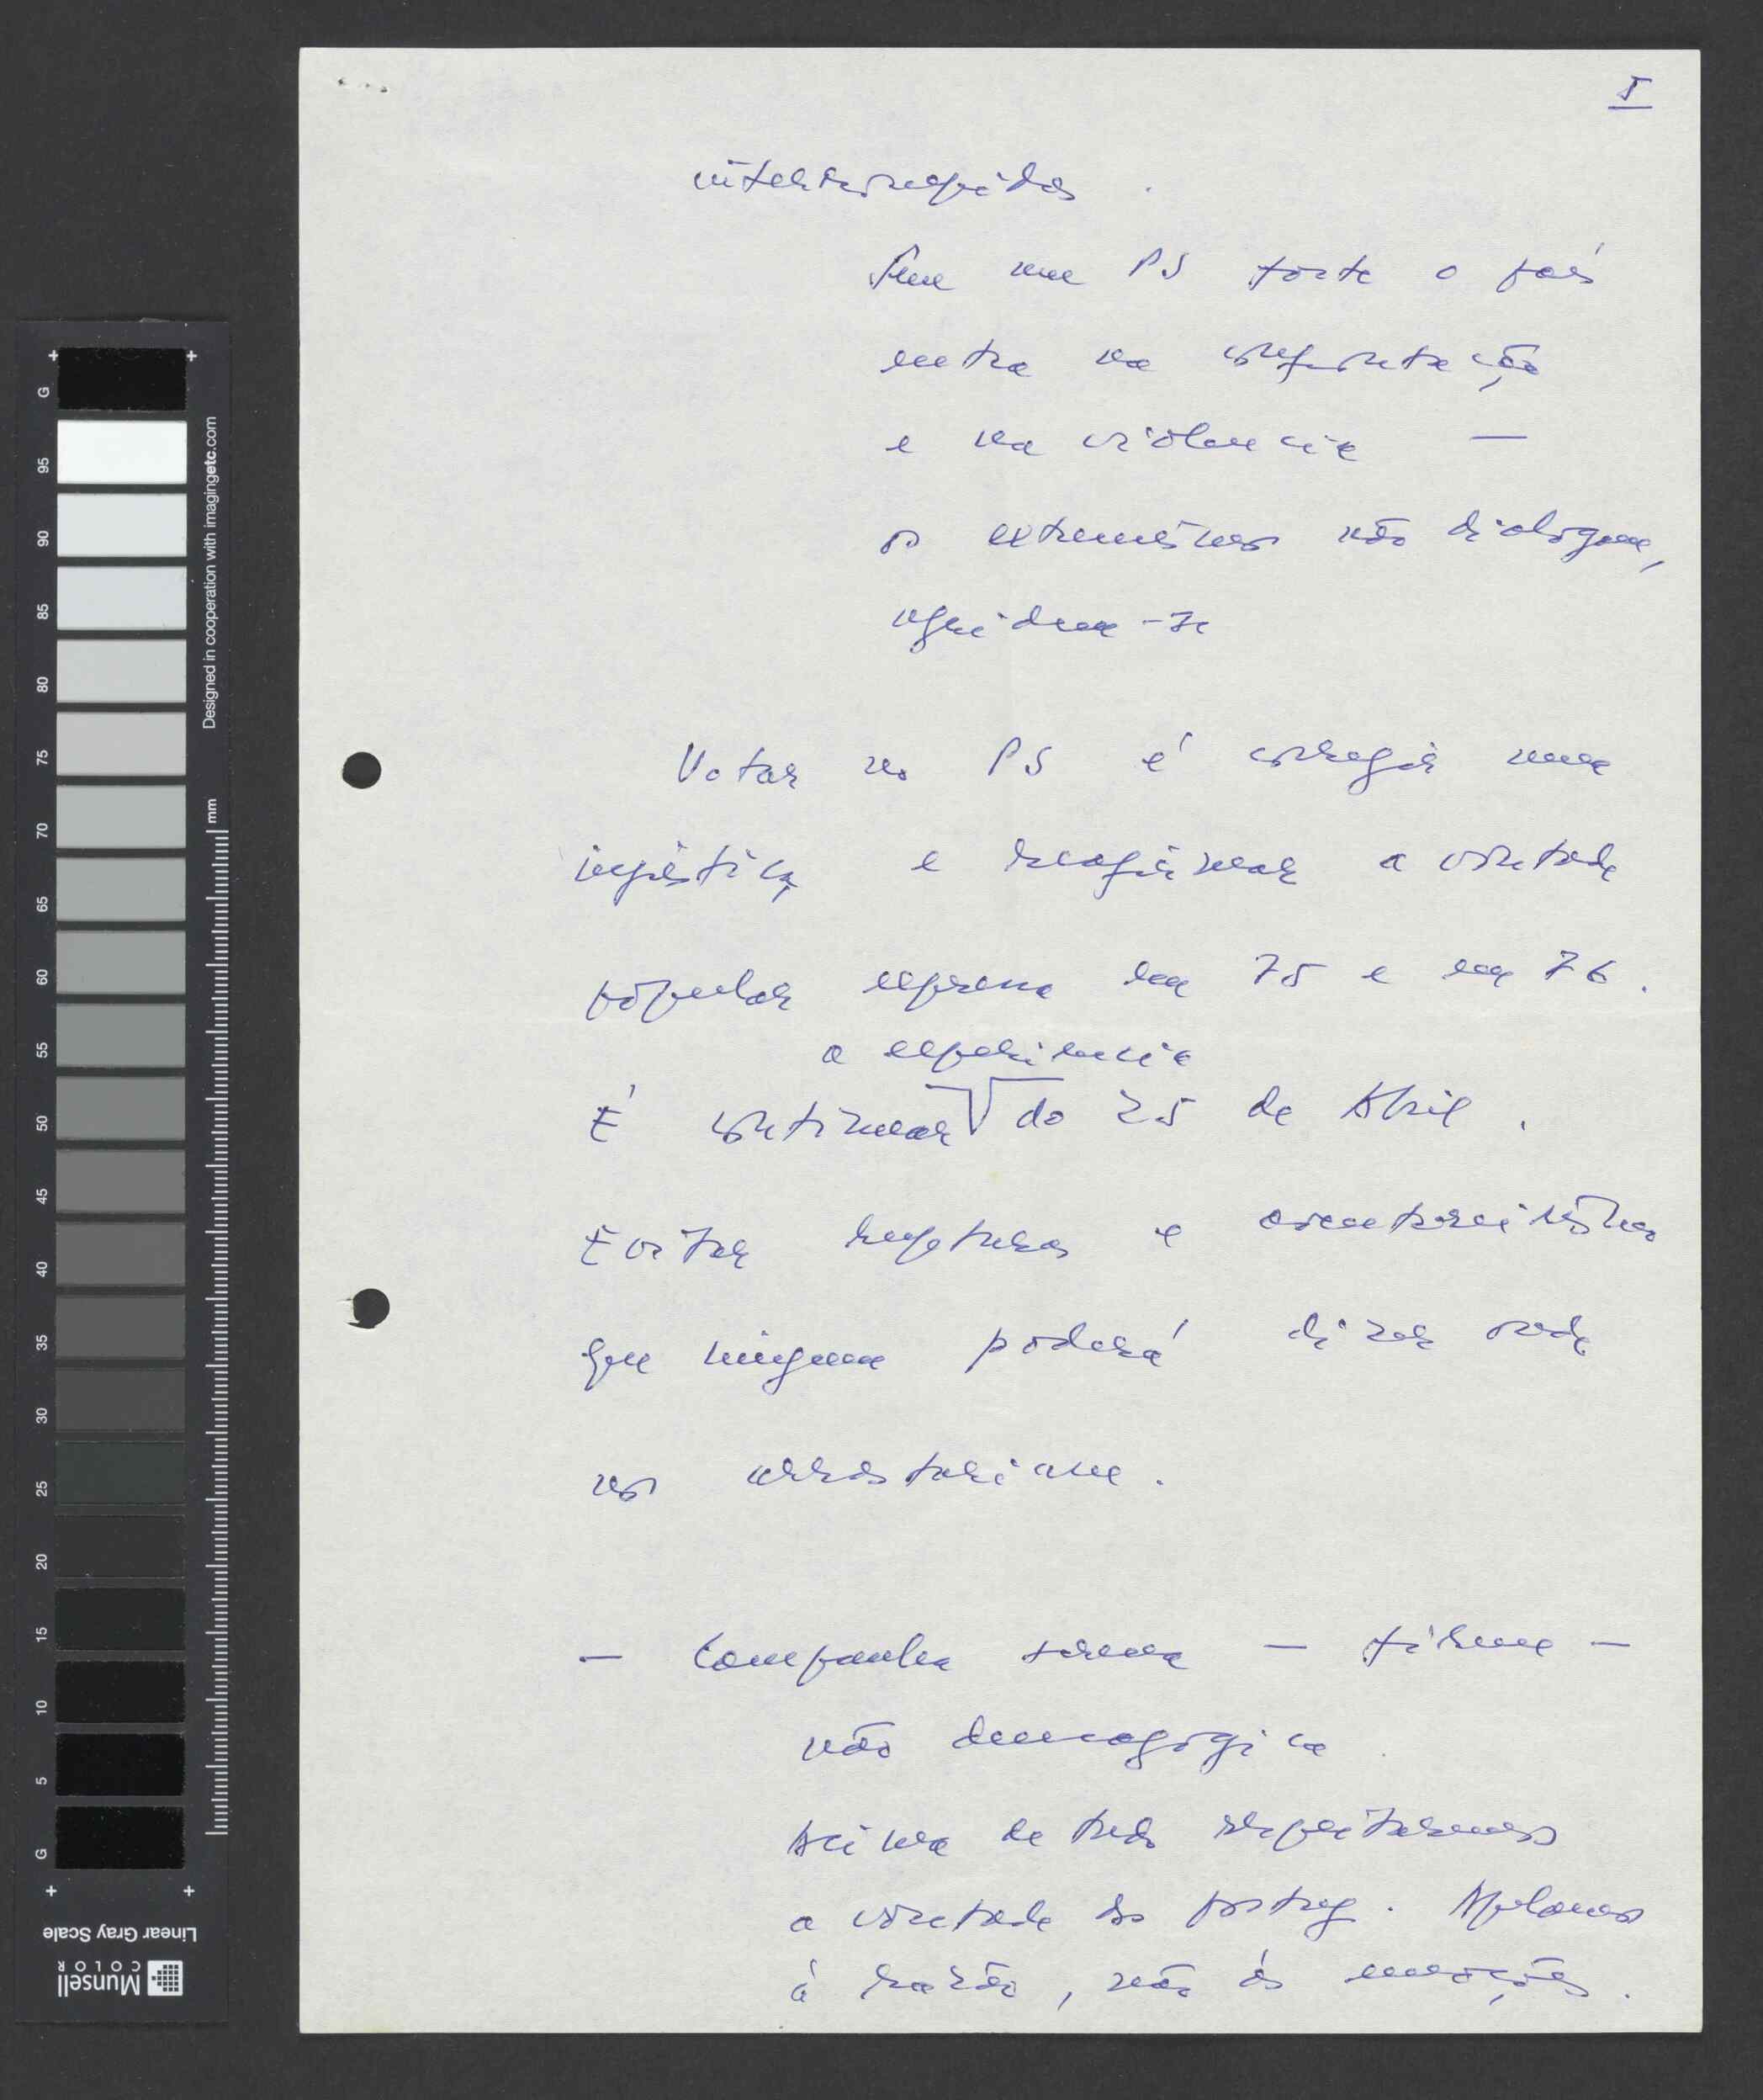 5
interrompidas.
Sem um PS forte o país
entra na confrontação
e na violência —
os extremismos não dialogam,
agridem-se
Votar no PS é corrigir uma
injustiça e reafirmar a vontade
popular expressa em 75 e em 76.
a experiência
É continuar do 25 de Abril.
Evitar rupturas e
que ninguem poderá dizer onde
nos arrastariam.
— Campanha serena — firme —
não demagógica
Acima de tudo respeitaremos
a vontade do portug. Apelamos
à razão, não às emoções.
G
95
90
85
80
75
70
65
60
55
50
45
40
35
30
25
20
15
10
5
G
Designed in cooperation with imagingetc.com
mm
Linear Gray Scale
Munsell
COLOR